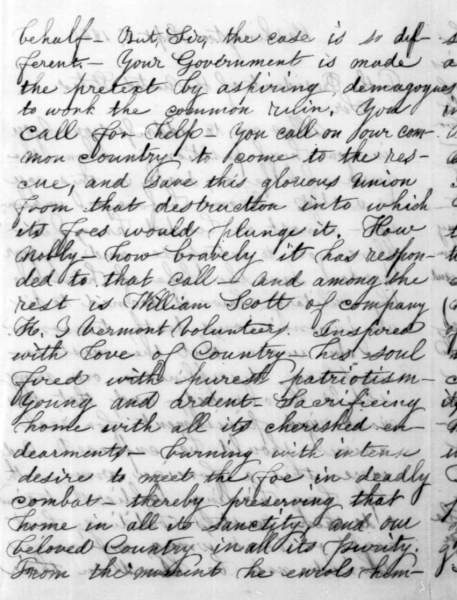 behalf – But, Sir, the case is so dif-
ferent. – Your Government is made
the pretext by aspiring demagogues
to work the common ruin. You
call for help – You call on your com-
mon country to come to the res-
cue, and save this glorious Union
from that destruction into which
its foes would plunge it. How
nobly – how bravely it has respon-
ded to that call – and among the
rest is William Scott of company
K. 3 Vermont Volunteers. Inspired
with love of Country – his soul
fired with purest patriotism –
Young and ardent – Sacrificing
home with all its cherished en-
dearments – burning with intense
desire to meet the foe in deadly
combat – thereby preserving that
home in all its sanctity and our
beloved Country in all its purity.
From the moment he enrols him-